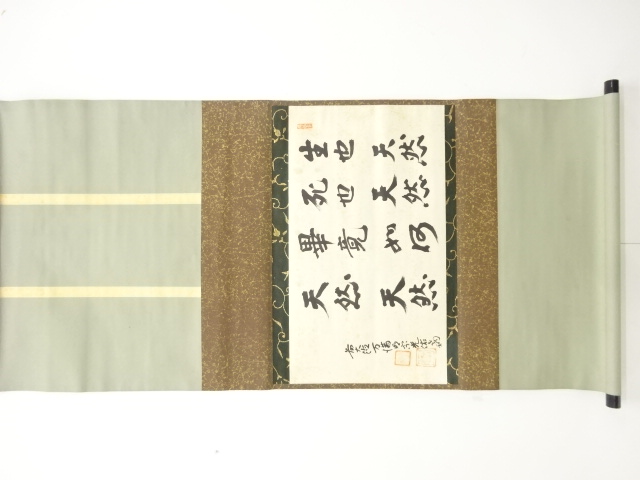 生也天然
死也天然
畢竟如何
天然天然